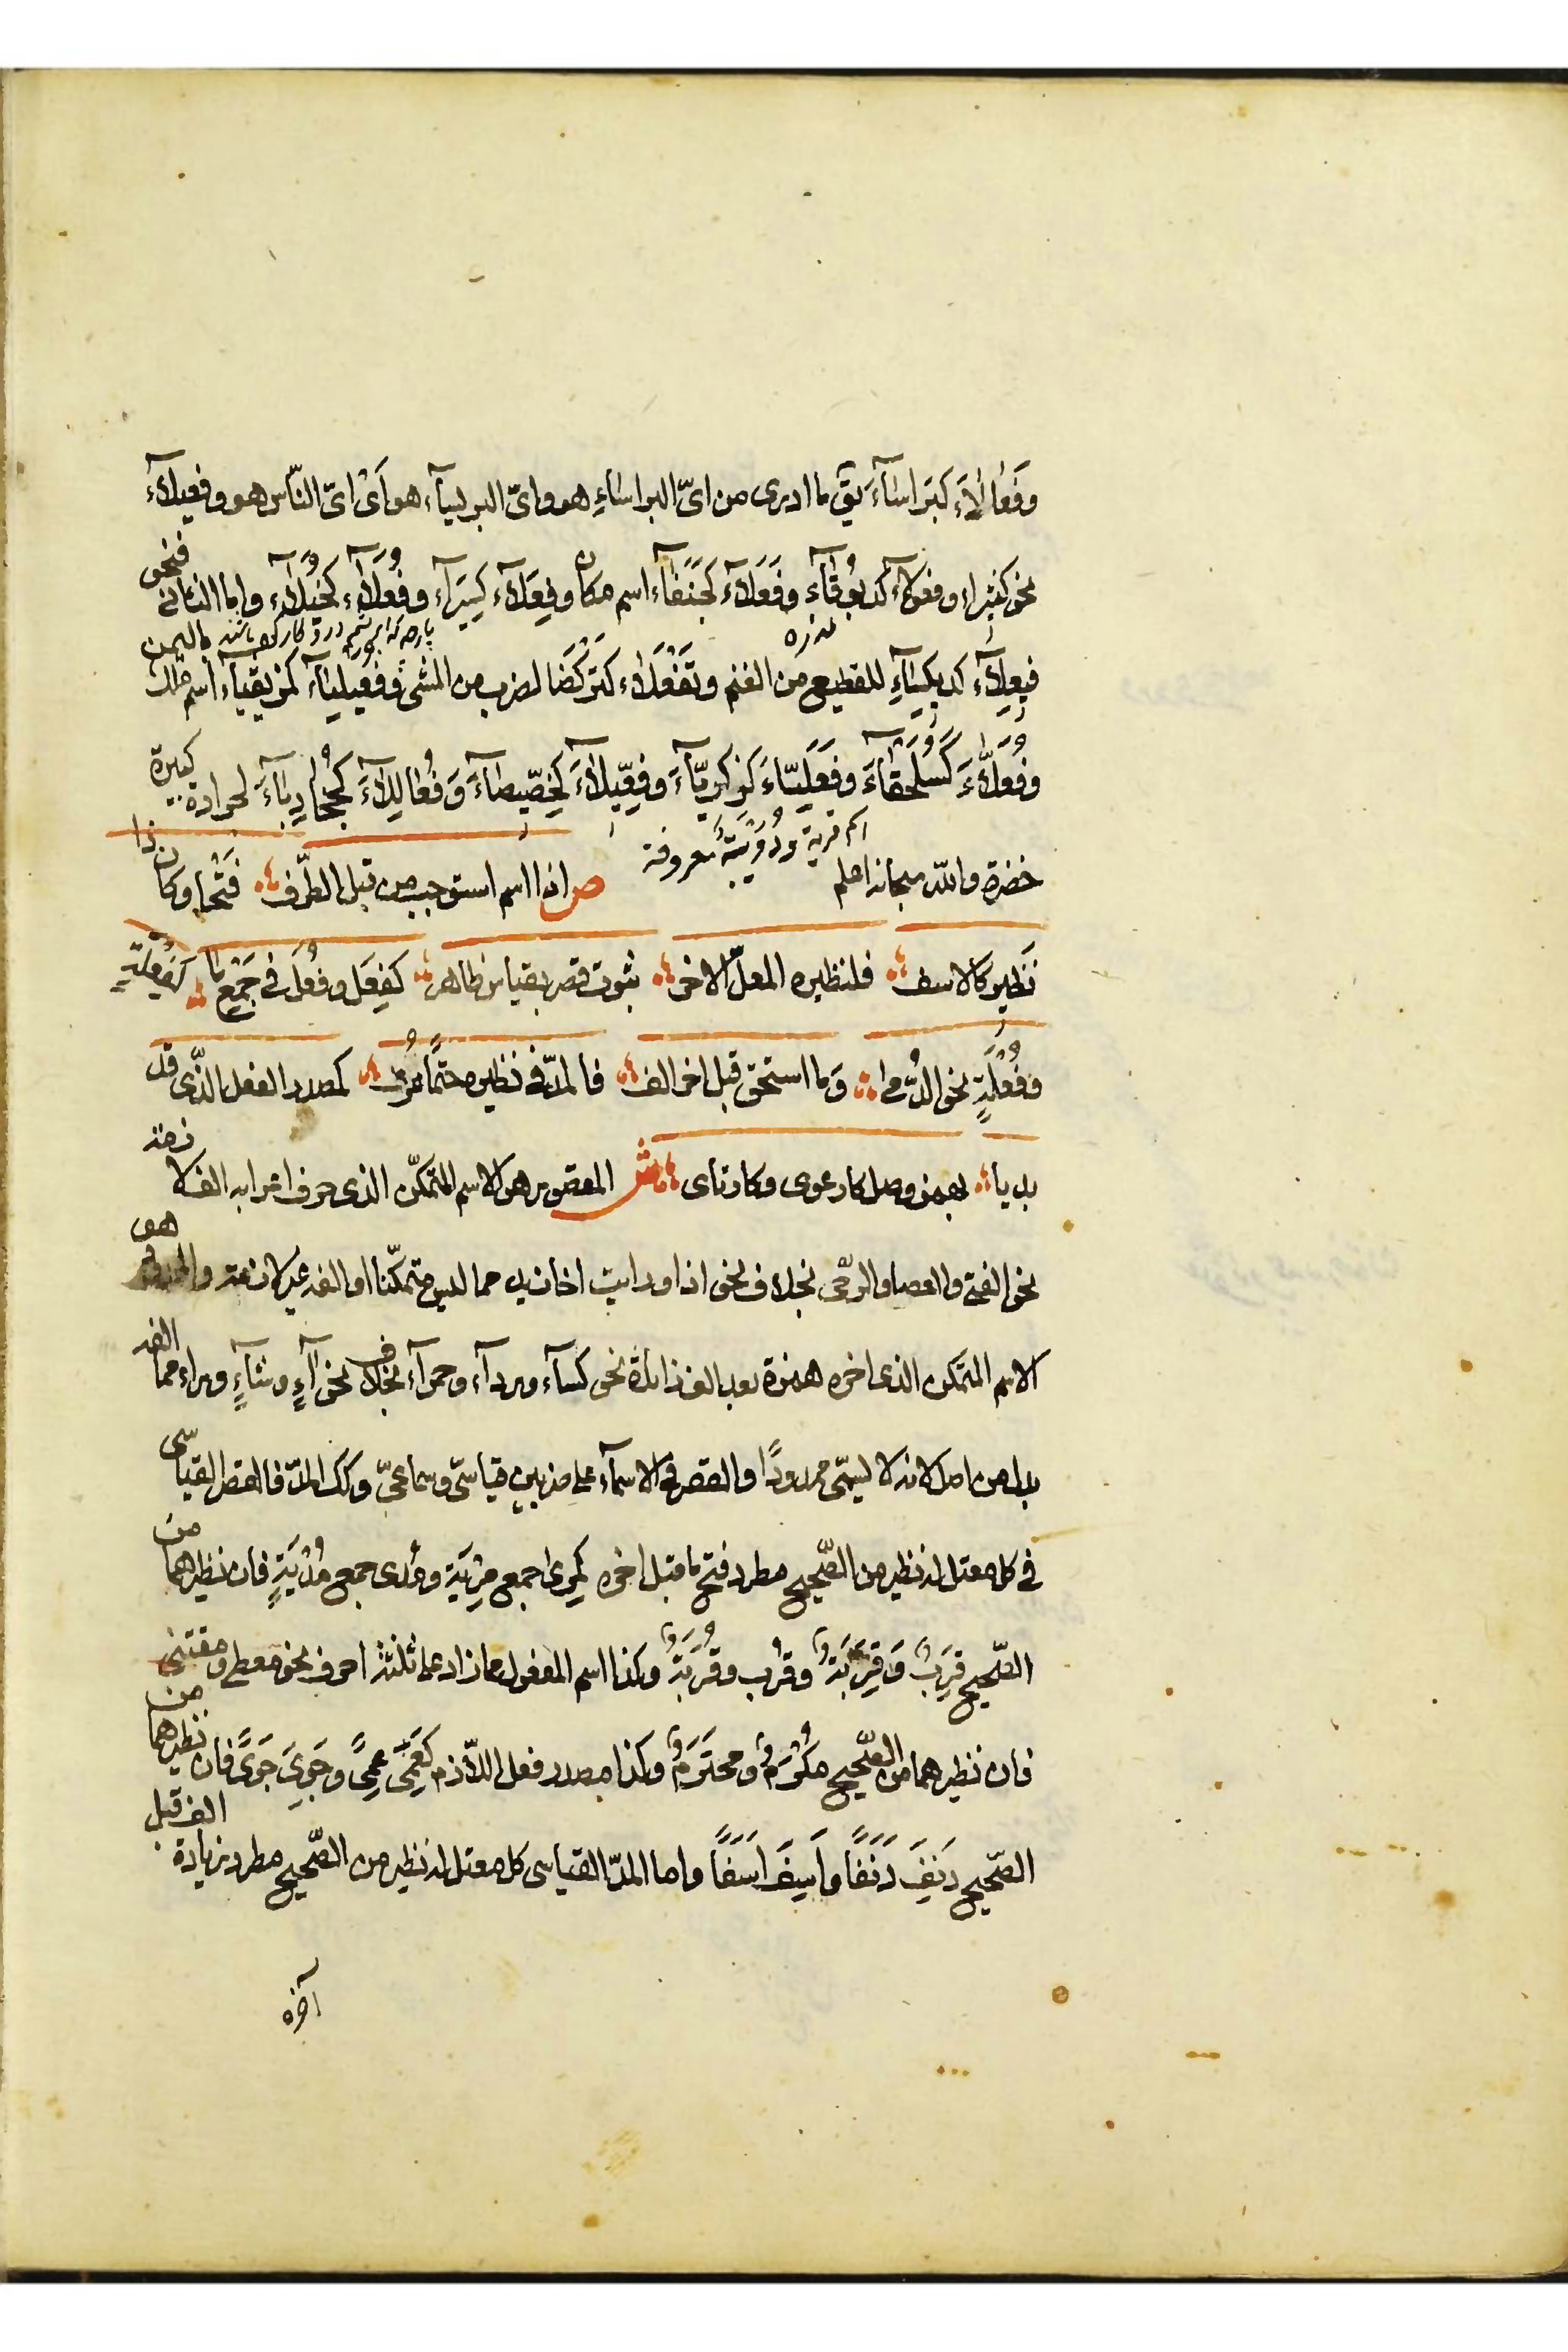 وفَعَالَاءَ كبَراسَآءَ يق ما ادرى من اىّ البراساءِ هو واىّ البرنساءِ هو اَىْ اىّ النّاس هو وفعيلآءَ
نحو كثيراء وفعولآءَ كدبوقآءَ وفَعَلَآءَ كَجَنَفَآءَ اسم مكان وفِعَلَآءَ كسِيَرَآءَ وفُعَلَآءَ كخُيَلَآءَ واما الثانى فنحو
پارچه كه ابريشم در و كار كرده باشند
فيعِلآءَ كديكِسَاءَ للقطيع من الغنم وتَفْعَلاء كتَرْكَضَا لضرب من المشى وفُعَيلِيَآءَ كمُزَيقِيَآءَ اسم ملك باليمن
وفُعَلَّاءَ كسُلَحْفَاءَ وفَعَلِيّاءَ كزكريّآءَ وفِعِّيلَآءَ كخِصّيصَآءَ وَفُعالِلَآءَ كجُخَادِبَآءَ لجرادة كبيرة
اسم قرية ودُوَيْبَّة معروفة
خضرة والله سبحانه اعلم ص اذا اسم استوجب من قبل الطّرف فَتْحا وكان ذا
نَظير كالاسف فلنظيره المعلّ الاخر ثبوت قصر بقياس ظاهر كفِعَل وفُعَل فى جَمْع ما كفِعْلَةٍ
وفُعْلَةٍ نحو الدُّمى وَما استحق قبل اخر الف فالمدّ فى نظيره حتمًا عُرف كمصدر الفعل الذّى قد
بديا بهمز وصل كارعوى وكارتاى ش المقصور هو الاسم المتمكّن الذى حرف اعرابه الف لازمة
نحو الفتى والعصا والرّحى بخلاف نحو اذا ورايت اخا زيد مما ليس متمكّنا او الفه غير لازمة والممدود هو
الاسم المتمكن الذى اخره همزة بعد الف زائدة نحو كسآء وردآء وحمرآء بخلاف نحو آآءٍ وشآءٍ وراء مما الفه
بدل من اصل لانه لا يسمّى ممدودًا والقصر فى الاسمآء على ضربين قياسّى وسماعىّ وكذلك المدّ فالقصر القياسّى
فى كل معتل له نظير من الصّحيح مطرد فتح ما قبل اخره كمِرًى جمع مِرْيَة ومُدى جمع مُدْيَةٍ فان نظيرهما من
الصّحيح قِرَبٌ وَقِرْبَةٌ وقُرَب وقُرْبَةٌ وكذا اسم المفعول مما زاد على ثلثة احرف نحو معطى ومقتنى
فان نظيرهما من الصّحيح مُكْرَمٌ ومحتَرَمٌ وكذا مصدر فعل اللّازم كعَمِىَ عَمىً وجَوِىَ جَوًى فان نظيرهما من
الصّحيح دَنِفَ دَنَفًا واَسِفَ اَسَفًا واما المدّ القياسى كل معتل له نظير من الصّحيح مطرد زيادة الف قبل
آخره